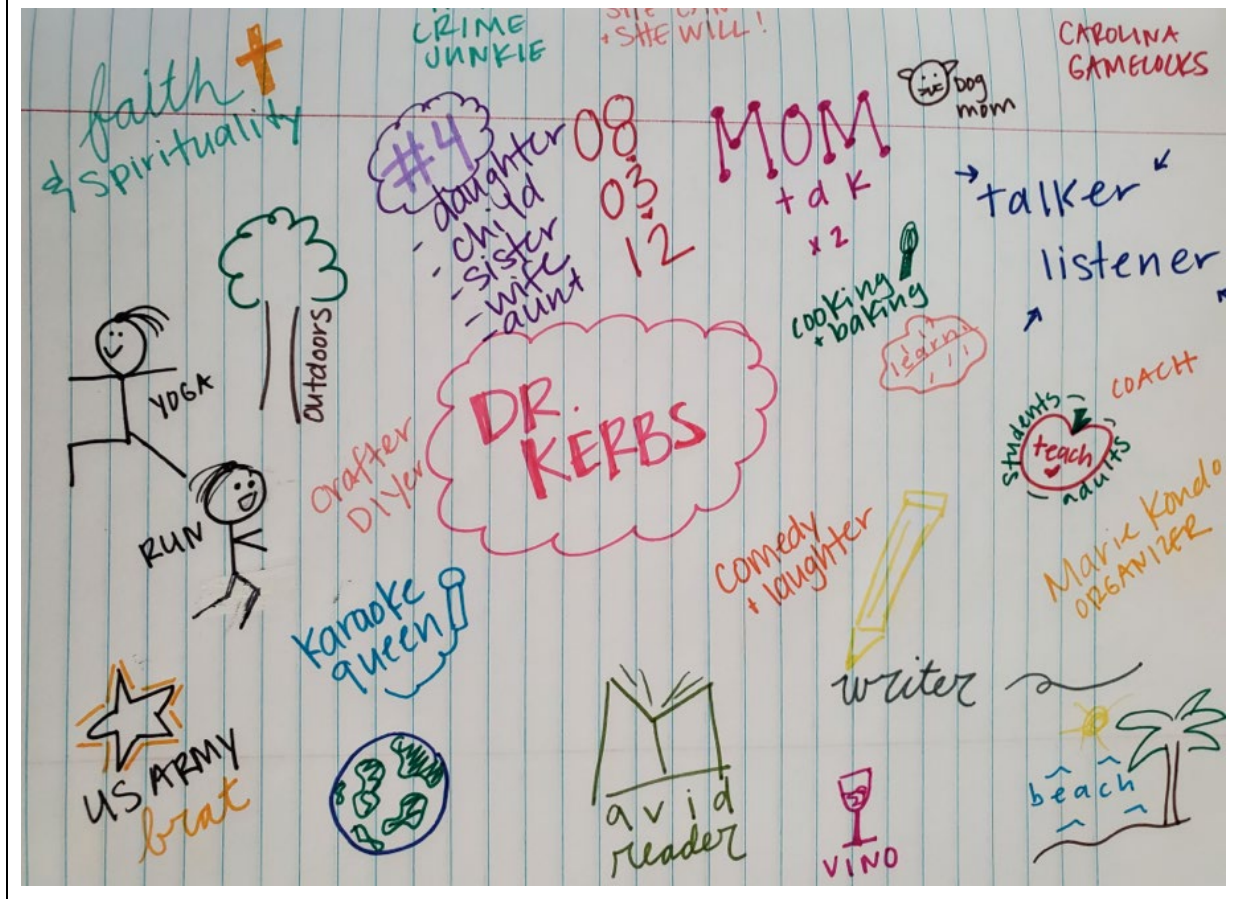 CRIME
JUNKIE
+ SHE WILL!
CAROLINA
GAMECOCKS
faith
& spirituality
#4
- daughter
- child
- sister
- wife
- aunt
08
03
12
MOM
+ d K
x2
Dog
mom
talker
listener
cooking
+ baking
learn
outdoors
YOGA
RUN
crafter
DIYer
DR.
KERBS
COACH
students
teach
adults
Marie Kondo
ORGANIZER
comedy
+ laughter
karaoke
queen
writer
US ARMY
brat
avid
reader
VINO
beach